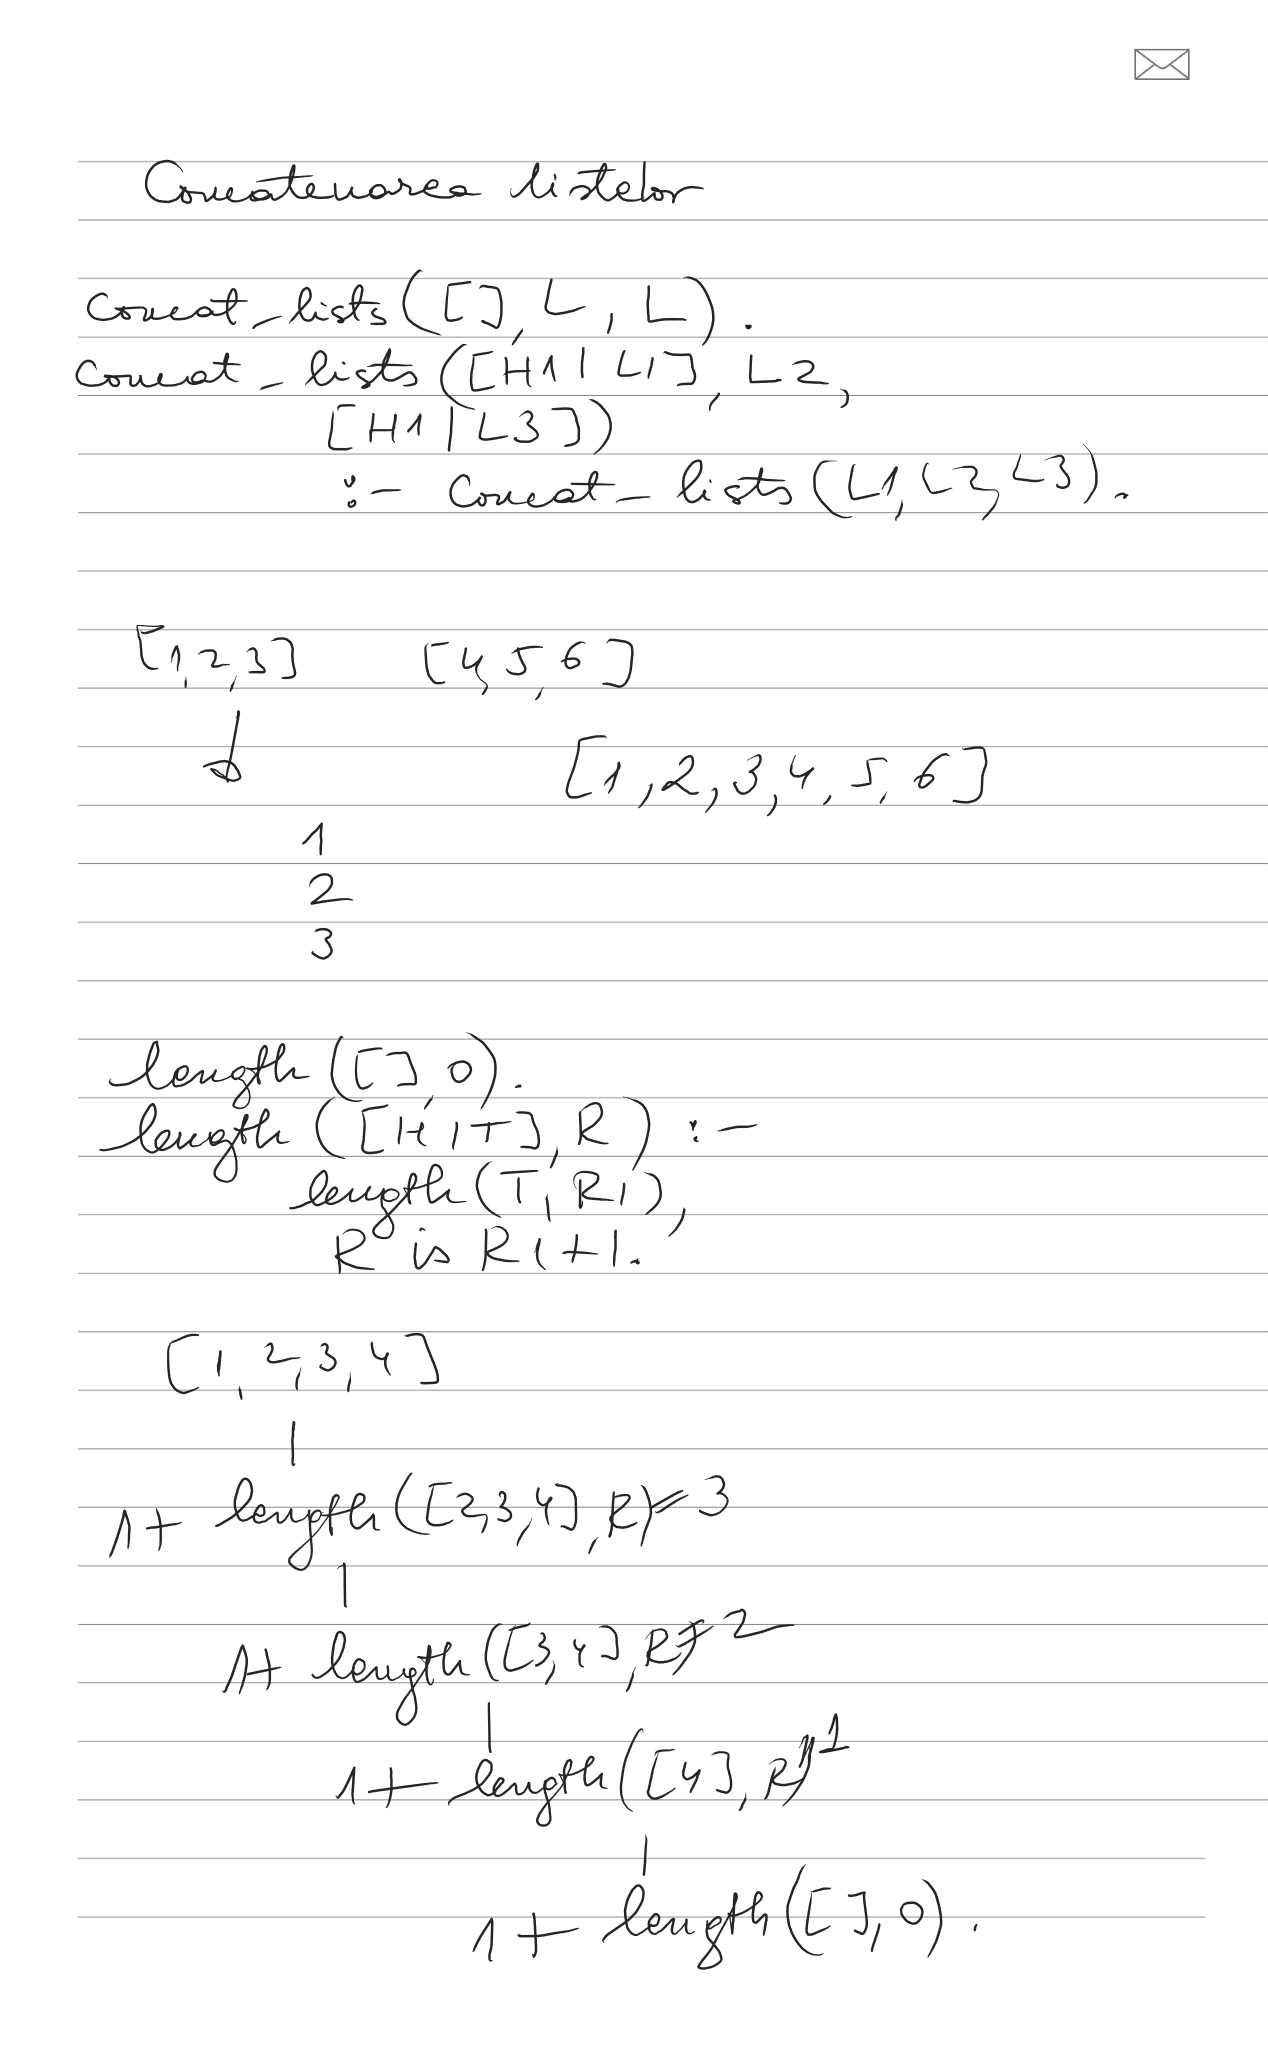 Concatenarea listelor
concat_lists([], L, L).
concat_lists([H1|L1], L2,
[H1|L3])
:- concat_lists(L1, L2, L3).
[1,2,3] [4,5,6]
[1,2,3,4,5,6]
1
2
3
length([], 0).
length([H|T], R) :-
length(T, R1),
R is R1+1.
[1,2,3,4]
1+ length([2,3,4], R)=3
1+ length([3,4], R)=2
1+ length([4], R)=1
1+ length([], 0).